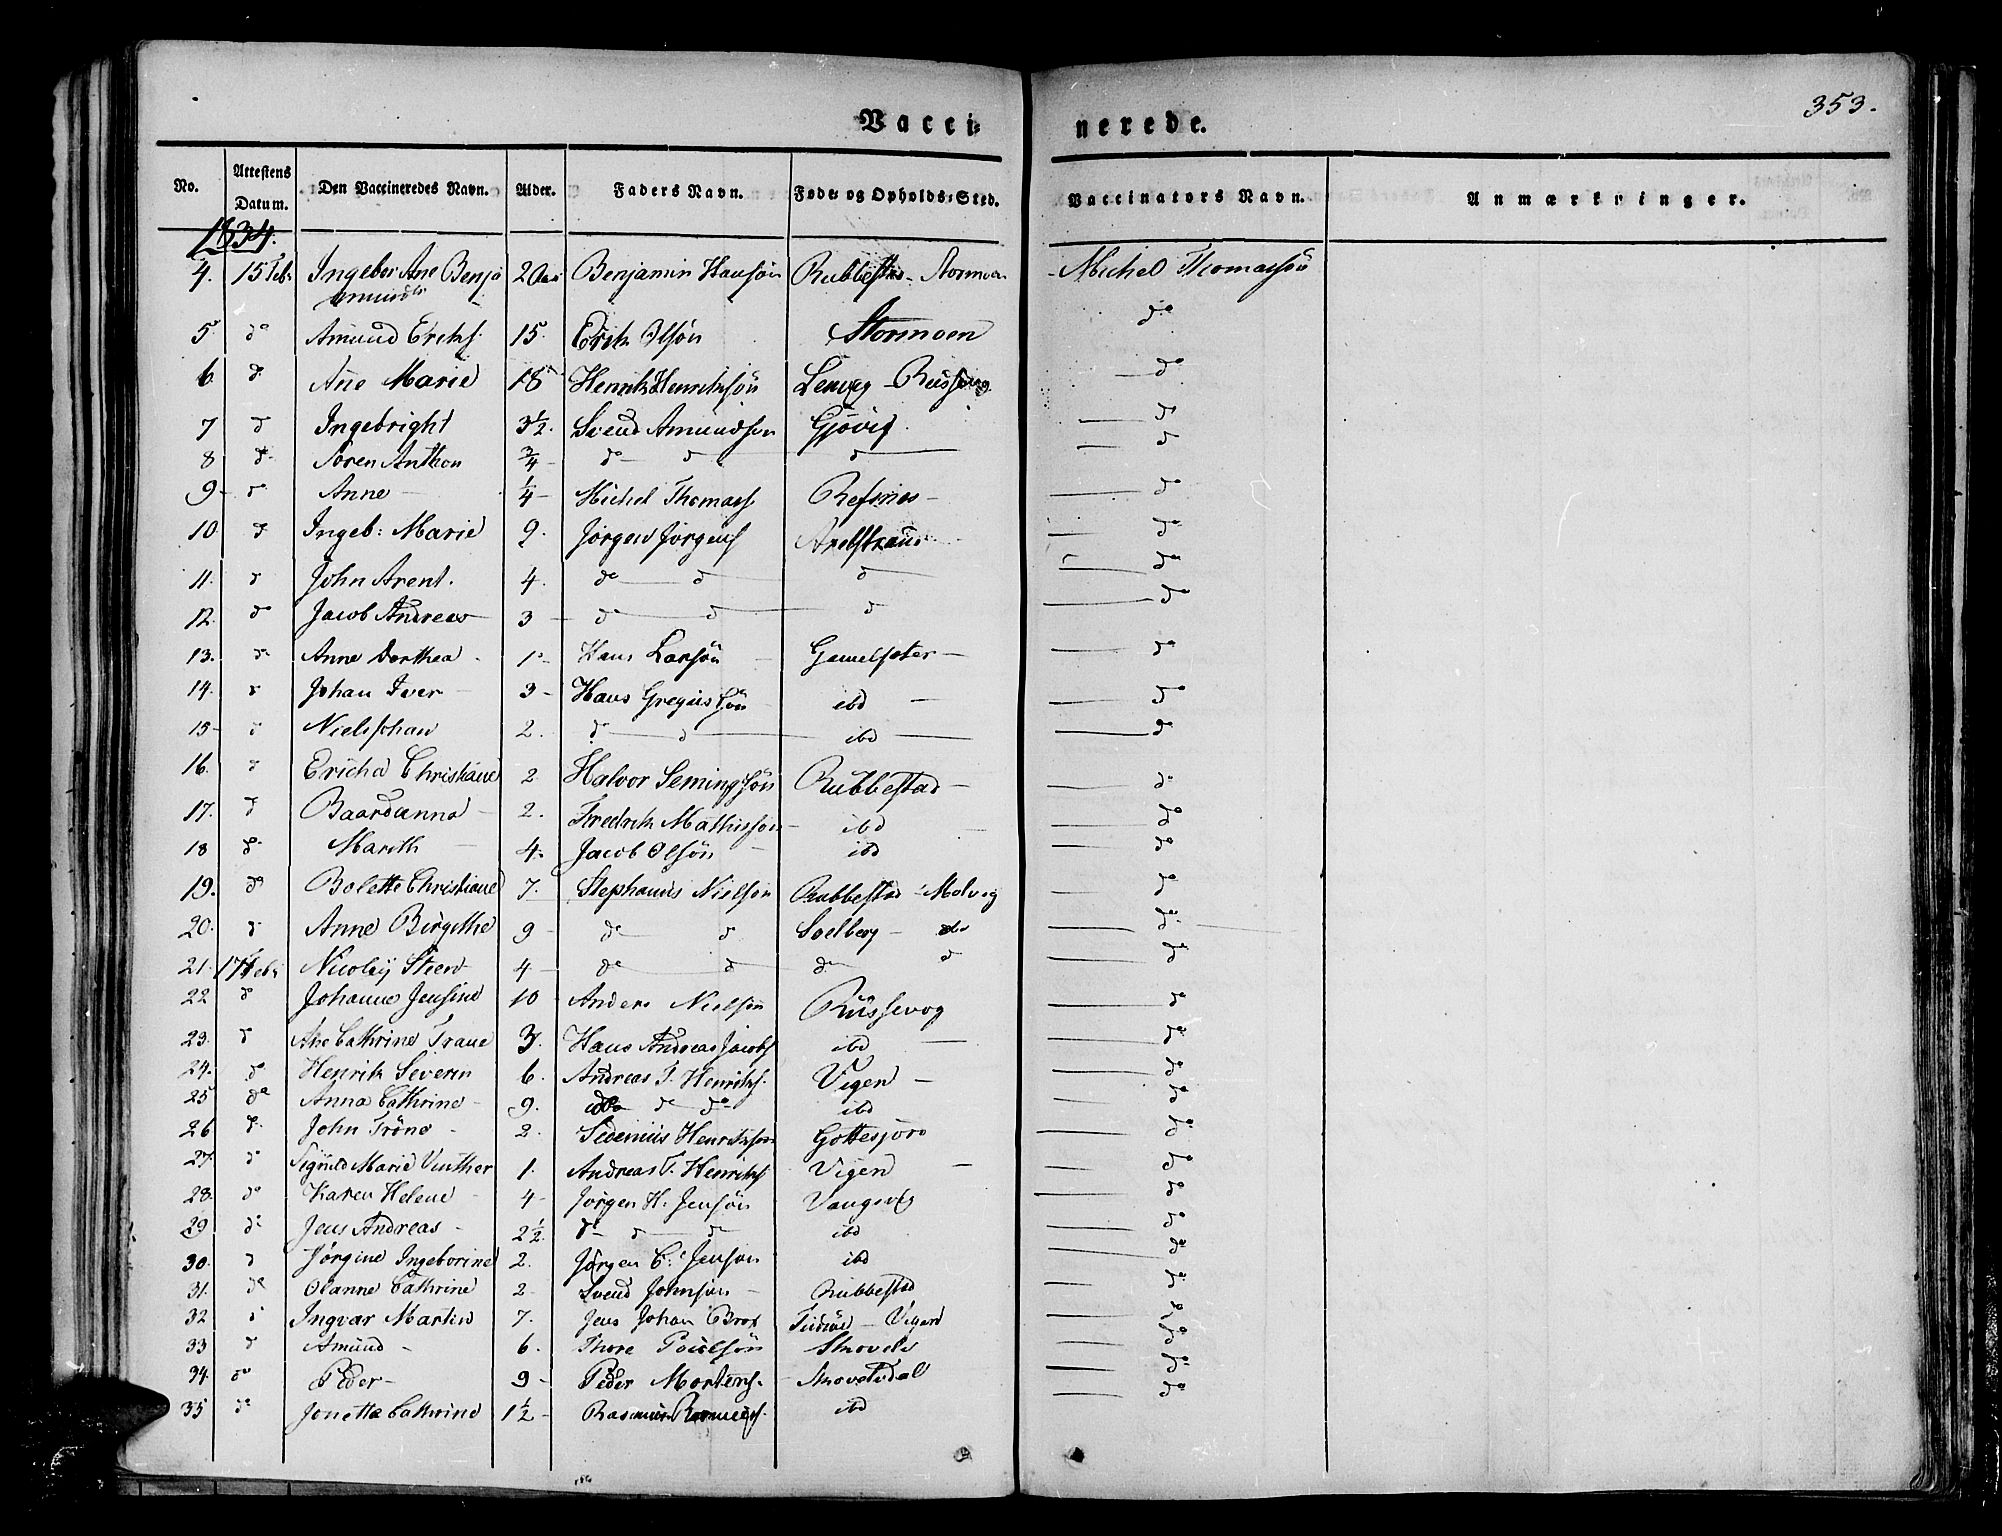 353.
Vacci= nerede.
No. Attestens Datum. Den Vaccineredes Navn. Alder. Faders Navn. Føde= og Opholds=Sted. Vaccinators Navn. Anmærkninger.
1834.
4. 15 Feb. Ingebor Ane Benja 2 Aar Benjamin Hansøn Rubbestad - Stormoen Michel Thomassøn
5 do Amund Eriks. 15. Erik Olsøn Stormoen do
6 d. Ane Marie 18 Henrik Henriksøn Lenvig - do
7 d Ingebright 3½. Svend Amundsøn Gjøvig d
8 d. Søren Anthon ¾ do d d d
9 - d Anne - ¼ - Michel Thomass. Refsnes - do
10 d Ingeb: Marie 9. Jørgen Jørgens. do
11. d John Arent. 4. do d d do
12. do Jacob Andreas 3 - do d d do
13. do Anne Dorthea . 1 - Hans Larsøn Gamelseter - do
14. d Johan Iver - 3 - Hans Gregusøn ibd - do
15 - d Niels Johan 2. do d ibd do
16. d Ericha Christiane 2 Halvor Semingsøn Rubbestad - do
17. d Baardanna - 2. Fredrik Mathissøn - ibd - do
18 d. Marith - 4. Jacob Olsøn - ibd do
19. do Bolette Christiane 7. Stephanus Nielsøn Rubbestad - Molvig do
20. d Anne Birgithe 9 do d Solberg - do do
21. 17 Feb. Nicolaÿ Steen 4 - do d do d do
22 d Johanne Jensine 10 - Anders Nielsøn Russevog do
23. d Ane Cathrine Trane 3. Hans Andreas Jacobs. ibd do
24. do Henrik Severin 6. Andreas T. Henriks. Vigen - do
25 do Anna Cathrine - 9. do do ibd do
26 d. John Trøno - 2. Sidenius Henriksøn Gottesjord do
27. d Marie Vinther 1. Andreas T. Henriks. Vigen - do
28. do Karen Helene - 4 - Jørgen H. Jensøn Vangsvig do
29 do Jens Andreas - 2½. do d d ibd do
30. d Jørgine Ingeborine 2. Jørgen C: Jensøn ibd do
31. do Olanne Cathrine 2 - Svend Johnsøn - Rubbestad do
32 d Ingvar Martin 7. Jens Johan Brox - Vigen do
33 d Amund - 6. Thore Povelsøn do
34. do Peder - 9 - Peder Mortens. - do
35 do Jonetta Cathrine 1½ - Rasmus ibd do